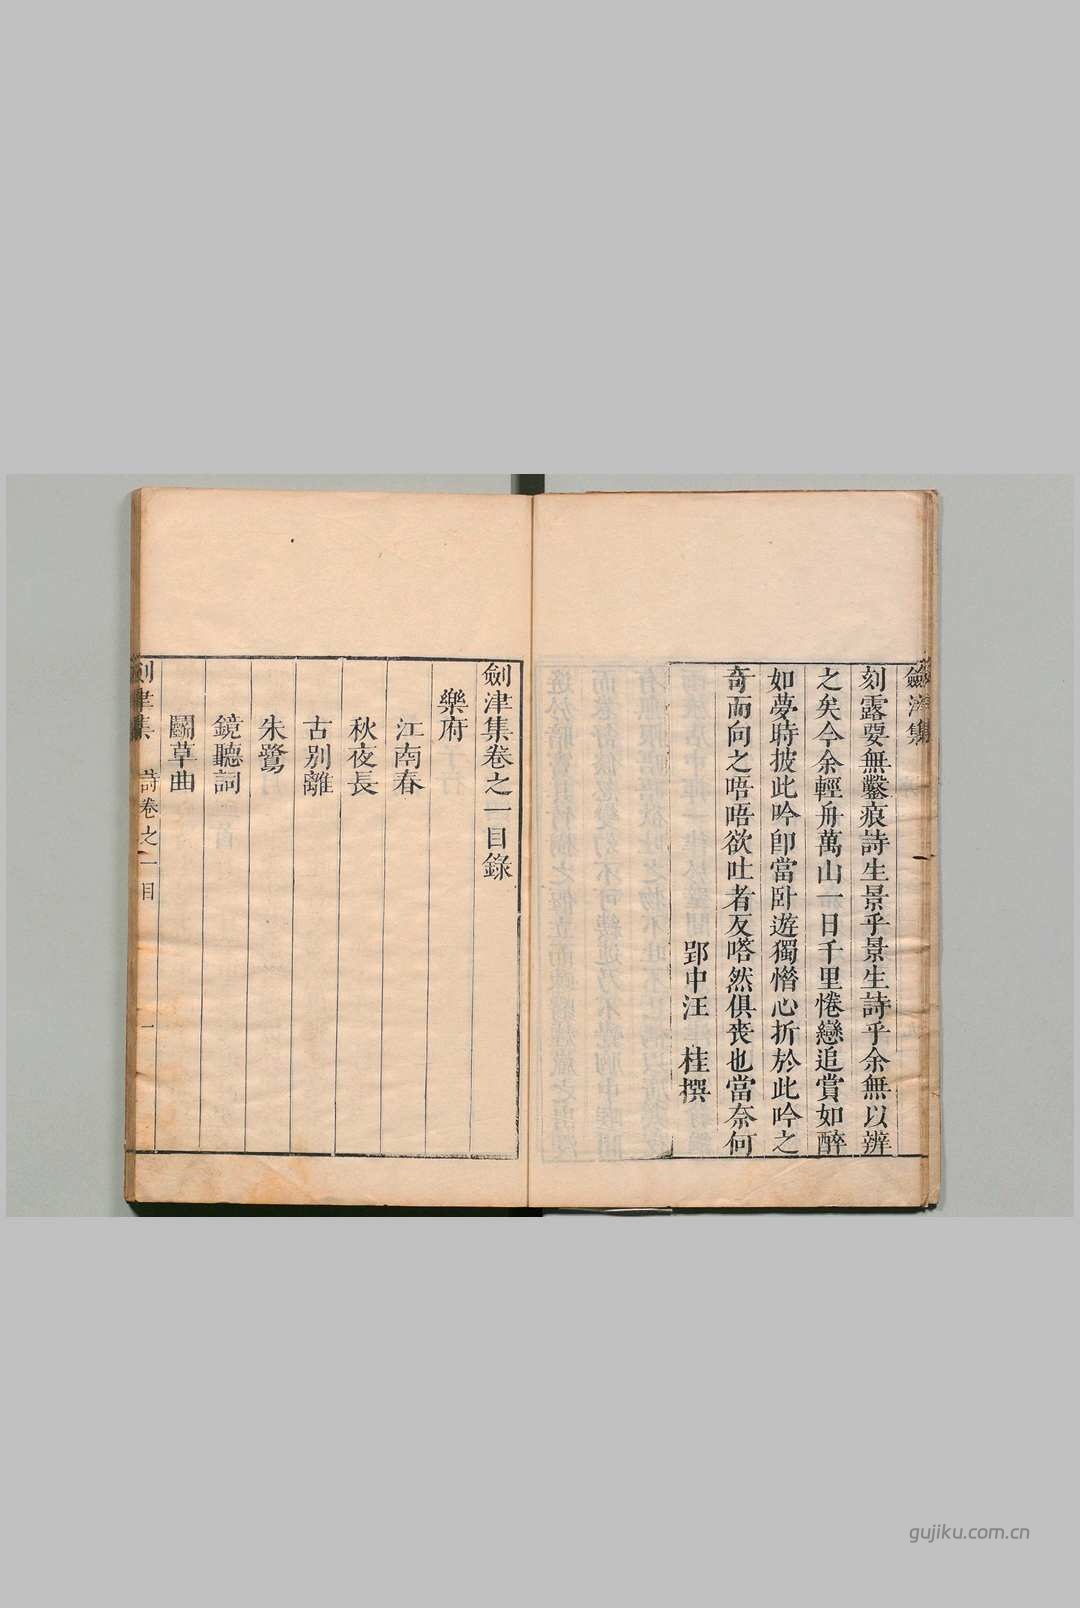 劍津集
刻露要無鑿痕詩生景乎景生詩乎余無以辨
之矣今余輕舟萬山一日千里惓戀追賞如醉
如夢時披此吟卽當臥遊獨憯心折於此吟之
奇而向之唔唔欲吐者反嗒然俱喪也當奈何
郢中汪　桂撰
劍津集卷之一目錄
樂府
江南春
秋夜長
古別離
朱鷺
鏡聽詞
鬭草曲
劍津集　詩卷之一目　一
gujiku.com.cn